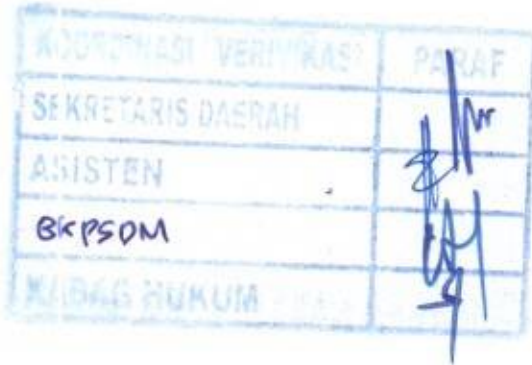 KOORDINASI VERIFIKASI PARAF
SEKRETARIS DAERAH
ASISTEN
BKPSDM
KABAG HUKUM